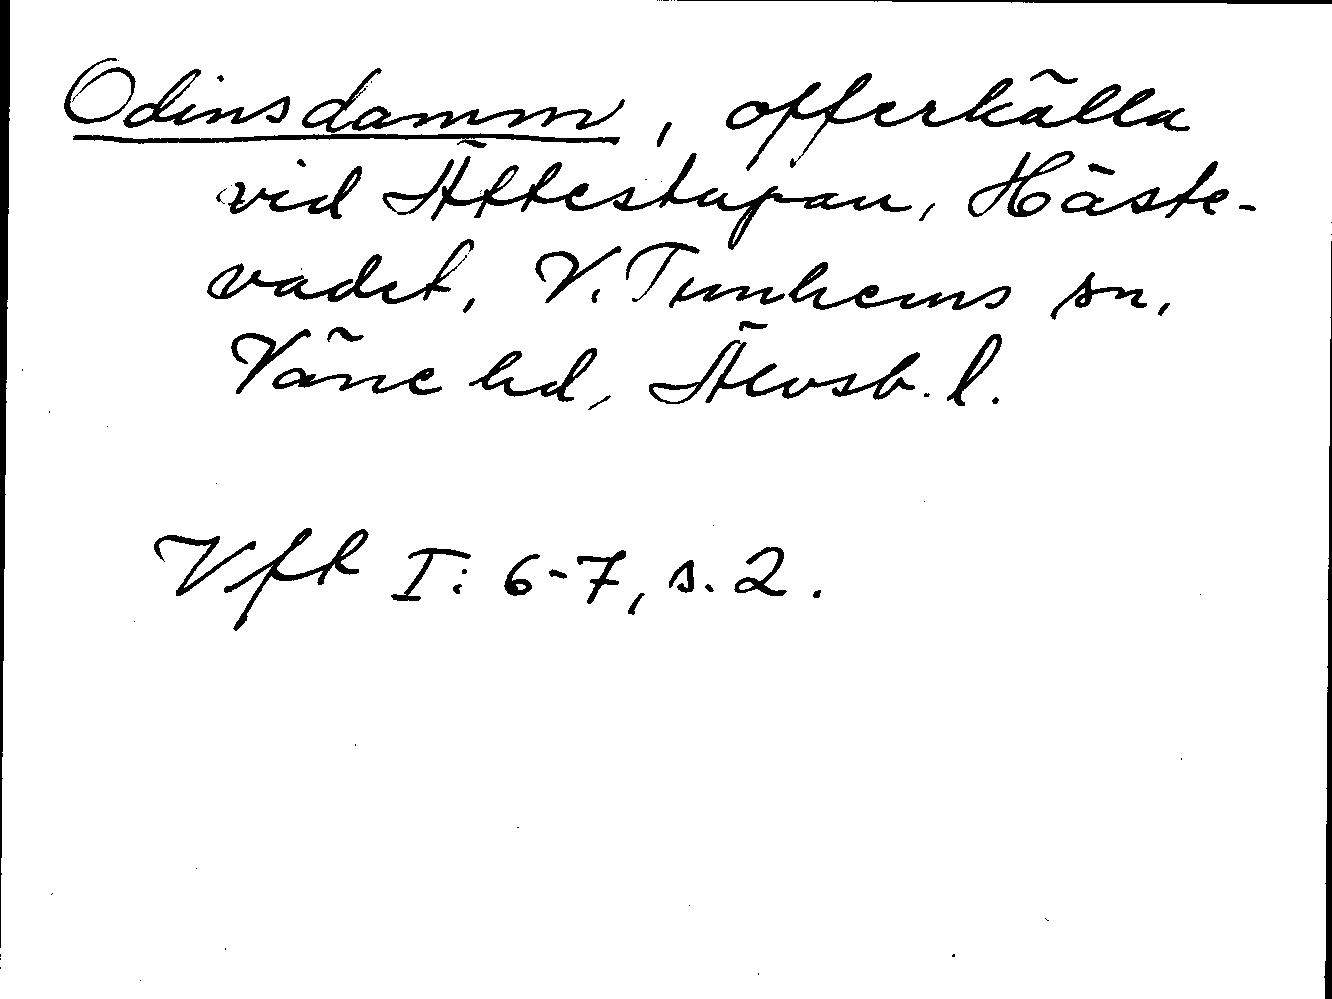 Odinsdamm, offerkälla
vid Ättestupan, Häste-
vadet, V. Tunhems sn,
Väne hd, Älvsb. l.
Vfk I: 6-7, s. 2.